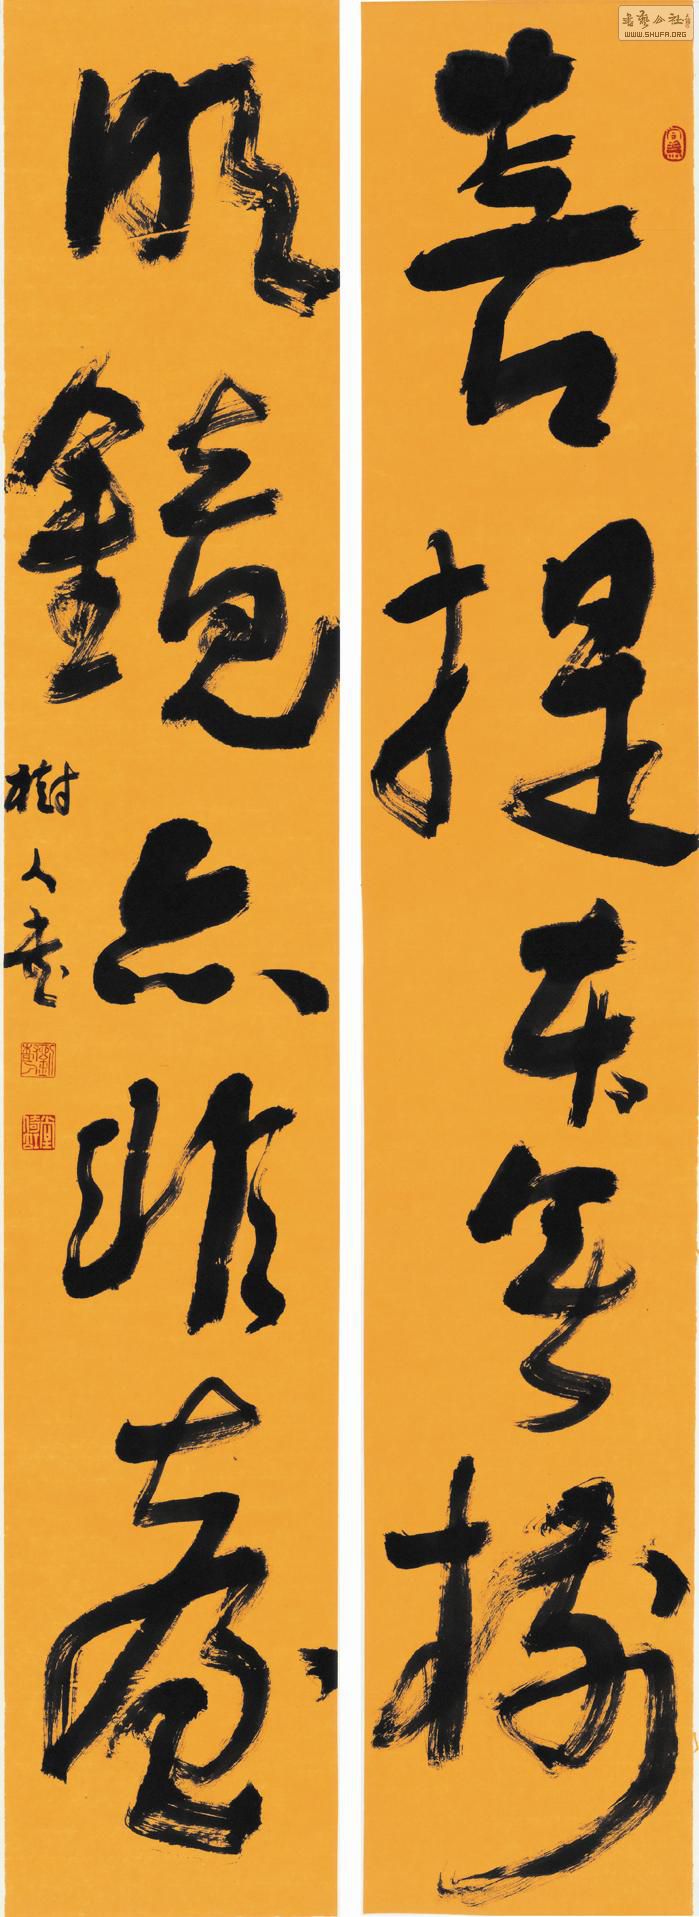 菩提本無樹
明鏡亦非臺
樹人書
書藝公社
WWW.SHUFA.ORG